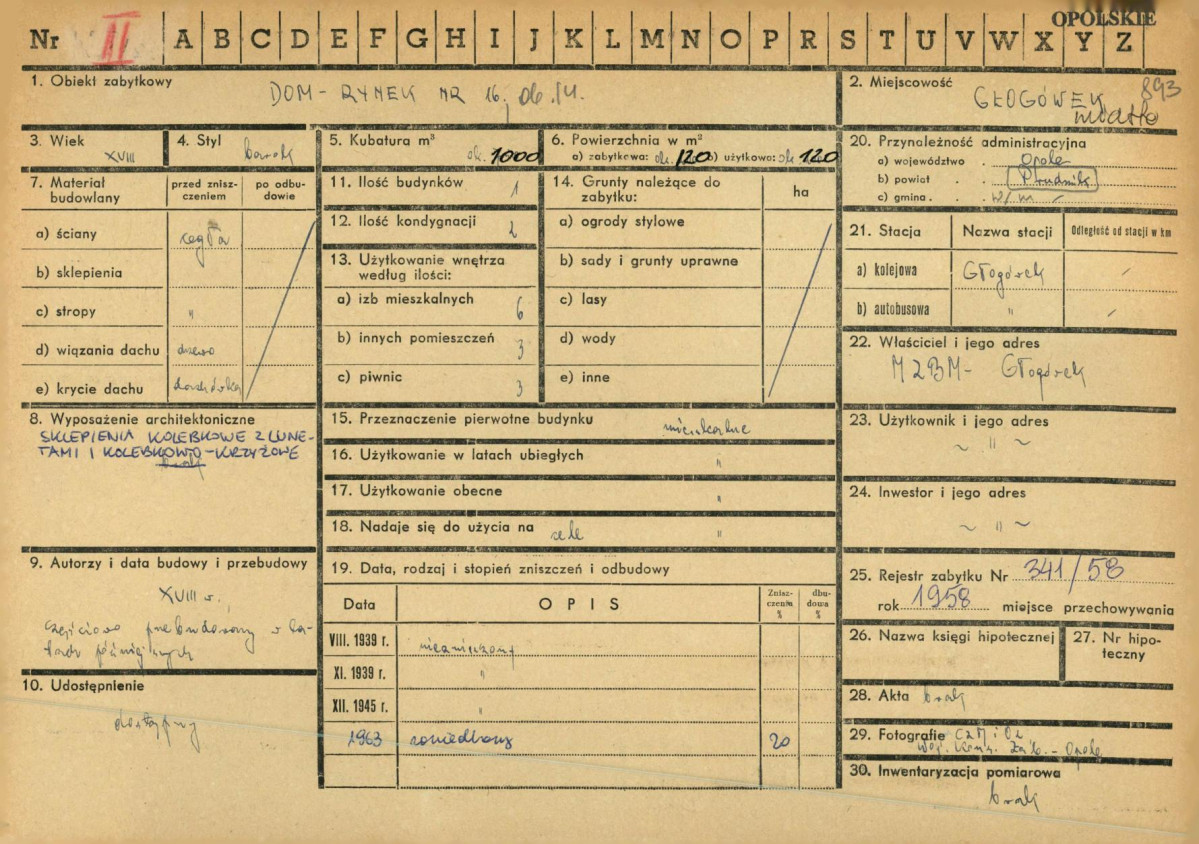 OPOLSKIE
Nr II A B C D E F G H I J K L M N O P R S T U V W X Y Z
1. Obiekt zabytkowy
DOM - RYNEK NR 16, ob. 14.
2. Miejscowość
893
GŁOGÓWEK
miasto
3. Wiek
XVIII
4. Styl
barok
5. Kubatura m³
ok. 1000
6. Powierzchnia w m²
a) zabytkowa: ok. 120 b) użytkowa: ok 120
7. Materiał budowlany
przed zniszczeniem
po odbudowie
a) ściany cegła
b) sklepienia
c) stropy "
d) wiązania dachu drewo
e) krycie dachu dachówka
8. Wyposażenie architektoniczne
SKLEPIENIA KOLEBKOWE Z LUNE-
TAMI I KOLEBKOWO-KRZYŻOWE
brak
9. Autorzy i data budowy i przebudowy
XVIII w.
częściowo przebudowany w la-
tach późniejszych
10. Udostępnienie
dostępny
11. Ilość budynków 1
12. Ilość kondygnacji 2
13. Użytkowanie wnętrza
według ilości:
a) izb mieszkalnych 6
b) innych pomieszczeń 3
c) piwnic 3
14. Grunty należące do
zabytku:
ha
a) ogrody stylowe
b) sady i grunty uprawne
c) lasy
d) wody
e) inne
15. Przeznaczenie pierwotne budynku mieszkalne
16. Użytkowanie w latach ubiegłych "
17. Użytkowanie obecne "
18. Nadaje się do użycia na cele "
19. Data, rodzaj i stopień zniszczeń i odbudowy
Data OPIS Zniszczenia % dbudowa %
VIII. 1939 r. niezniszczony
XI. 1939 r. "
XII. 1945 r. "
1963 zaniedbany 20
20. Przynależność administracyjna
a) województwo . Opole
b) powiat . . Prudnik
c) gmina . . . w/m -
21. Stacja Nazwa stacji Odległość od stacji w km
a) kolejowa Głogówek /
b) autobusowa " /
22. Właściciel i jego adres
MZBM - Głogówek
23. Użytkownik i jego adres
~ " ~
24. Inwestor i jego adres
~ " ~
25. Rejestr zabytku Nr 341/58
rok 1958 miejsce przechowywania
26. Nazwa księgi hipotecznej
27. Nr hipo-
teczny
28. Akta brak
29. Fotografie CZM i OZ
Woj. Kons. Zab. - Opole
30. Inwentaryzacja pomiarowa
brak